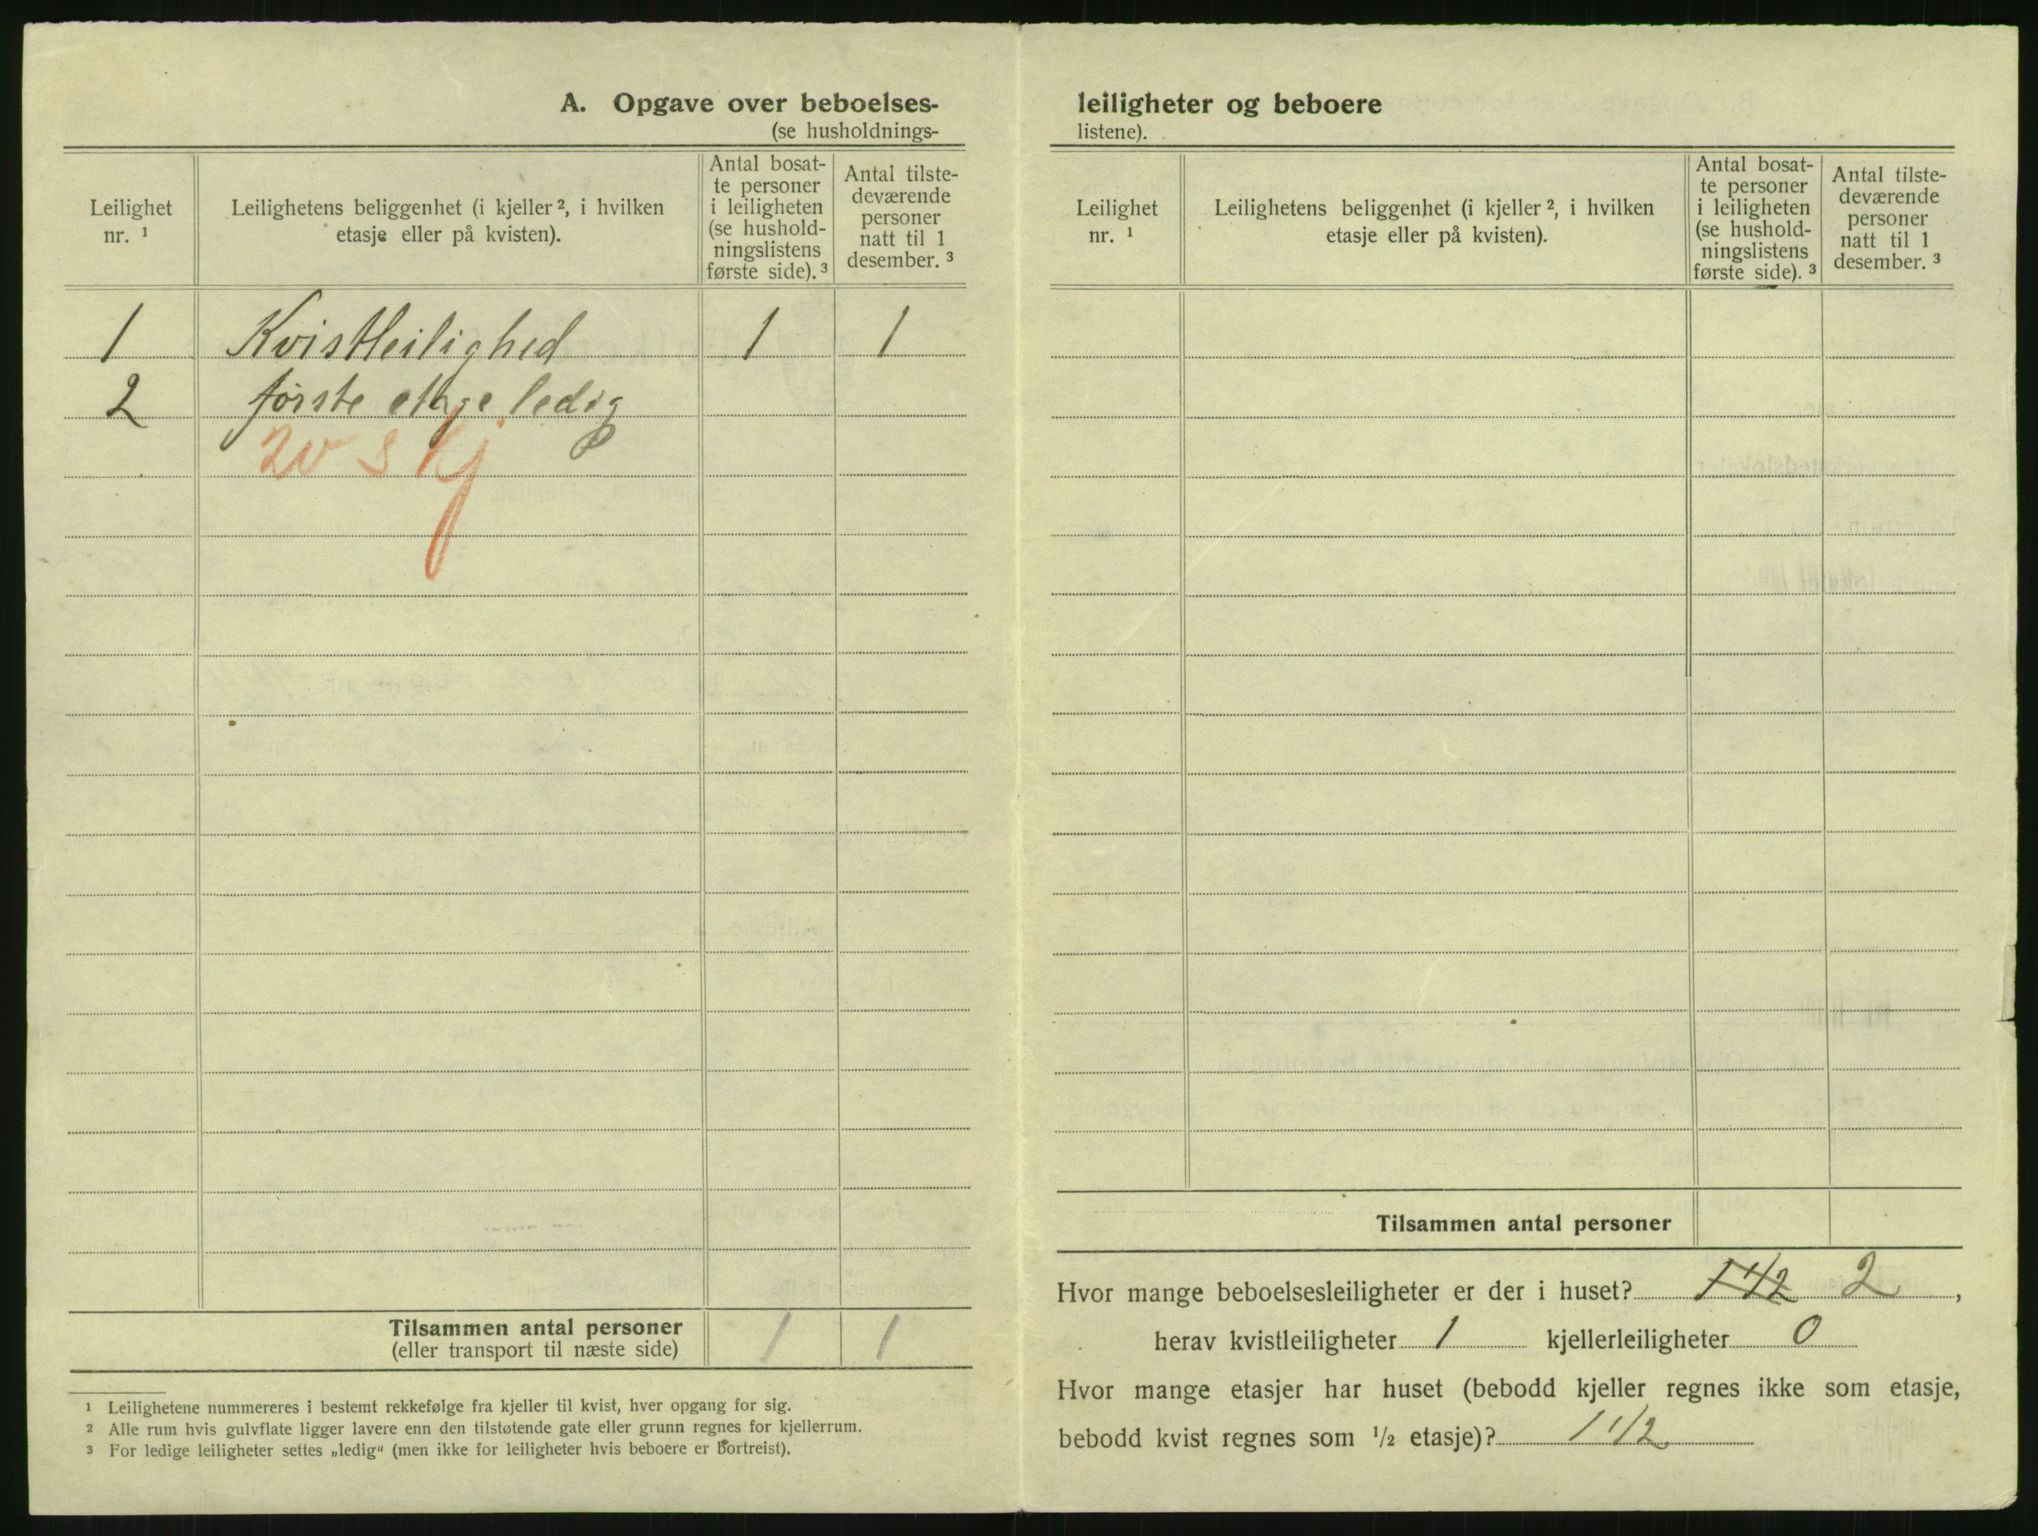 A. Opgave over beboelses-
(se husholdnings-
Leilighet nr. ¹
Leilighetens beliggenhet (i kjeller ², i hvilken etasje eller på kvisten).
Antal bosat-
te personer
i leiligheten
(se hushold-
ningslistens
første side). ³
Antal tilste-
deværende
personer
natt til 1
desember. ³
1 Kvistleilighed 1 1
2 første etage ledig
2v 3 kj
Tilsammen antal personer 1 1
(eller transport til næste side)
¹ Leilighetene nummereres i bestemt rekkefølge fra kjeller til kvist, hver opgang for sig.
² Alle rum hvis gulvflate ligger lavere enn den tilstøtende gate eller grunn regnes for kjellerrum.
³ For ledige leiligheter settes „ledig“ (men ikke for leiligheter hvis beboere er bortreist).
leiligheter og beboere
listene).
Leilighet nr. ¹
Leilighetens beliggenhet (i kjeller ², i hvilken etasje eller på kvisten).
Antal bosat-
te personer
i leiligheten
(se hushold-
ningslistens
første side). ³
Antal tilste-
deværende
personer
natt til 1
desember. ³
Tilsammen antal personer
Hvor mange beboelsesleiligheter er der i huset? 1 1/2 2,
herav kvistleiligheter 1 kjellerleiligheter 0
Hvor mange etasjer har huset (bebodd kjeller regnes ikke som etasje,
bebodd kvist regnes som ½ etasje)? 1 1/2